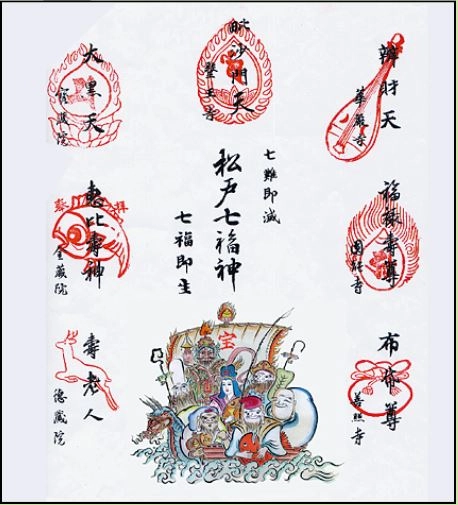 辨財天
華厳寺
毘沙門天
醫王寺
大黒天
寳蔵院
七難即滅
松戸七福神
七福即生
福禄壽尊
圓能寺
恵比壽神
金蔵院
布袋尊
善照寺
壽老人
徳蔵院
宝